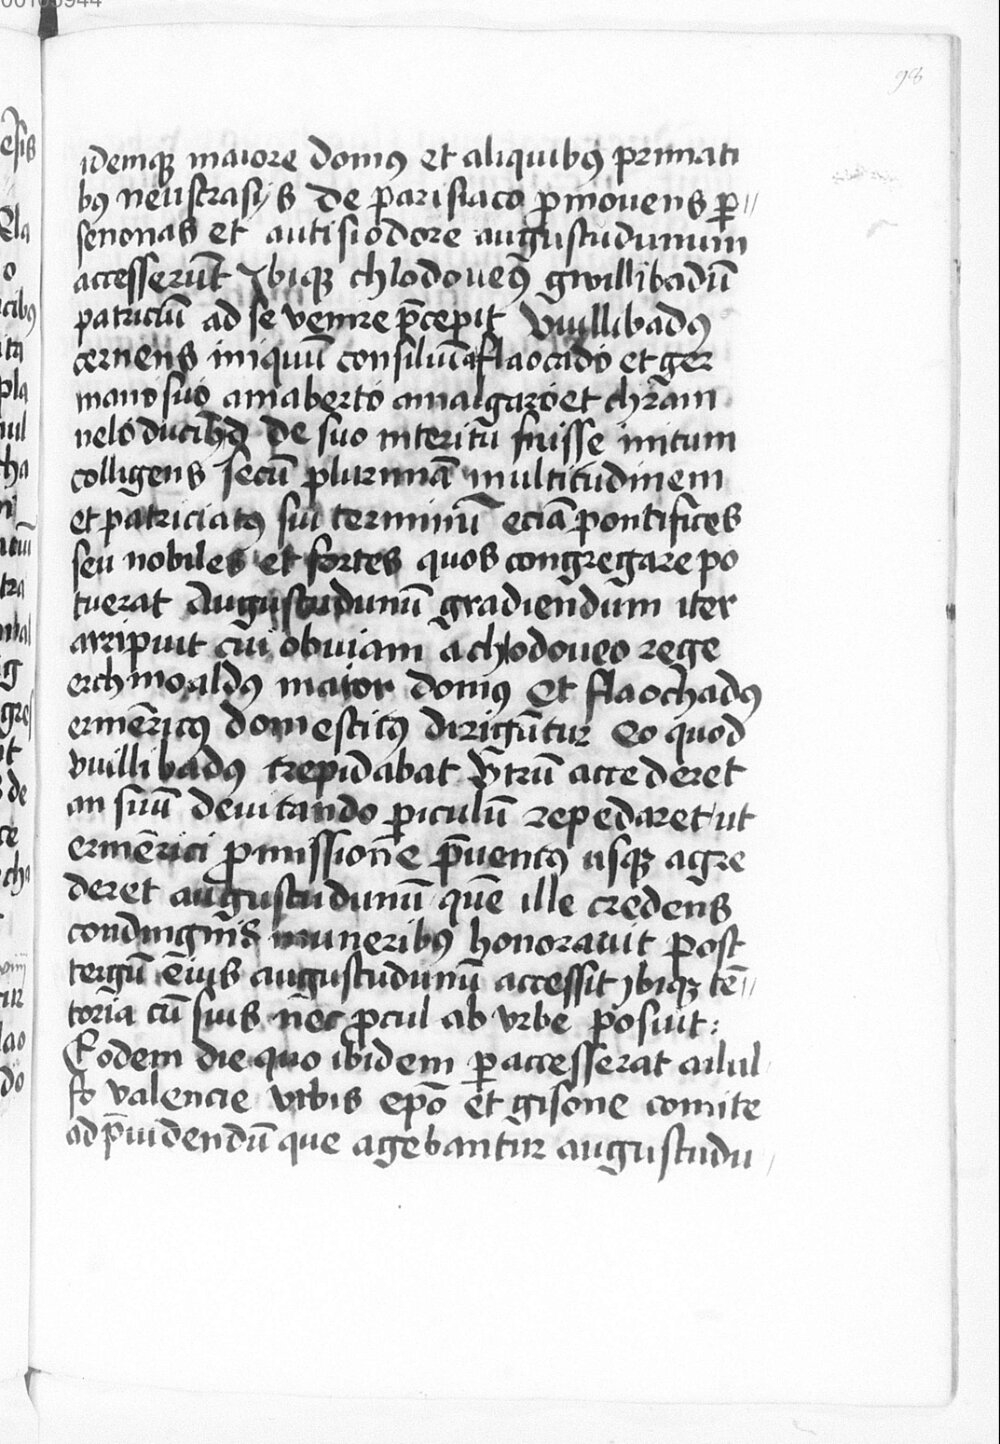 98
idemqꝫ maiore domꝰ et aliquibꝰ primati
bꝰ neustrasijs de parisiaco ꝓmouens ꝑ〃
senonas et autisiodore augustudunum
accesserūt Ibiqꝫ chlodoueꝰ gwillibadū
patriciū ad se venire p̄cepit Vuillibadꝰ
cernens iniquū consiliū a flaocado et ger
mano suo amaberto amalgaro et chram
nelo ducibꝰ de suo interitu fuisse initum
colligens secū plurimā multitudinem
et patriciatꝰ sui terminū eciā pontifices
seu nobiles et fortes quos congregare po
tuerat Augustudunū gradiendum iter
arripuit cui obuiam a chlodoueo rege
erchinoaldꝰ maior domꝰ Et flaochadꝰ
ermēricꝰ domesticꝰ dirigūtur Eo quod
vuillibadꝰ trepidabat Vtrū accederet
an suū deuitando ꝑiculū repedaret ut
ermērici ꝓmissione p̄uentꝰ usqꝫ agre
deret augustudunū quē ille credens
condingnis muneribꝰ honorauit post
tergū eius augustudunū accessit ibiqꝫ tē〃
toria cū suis nec ꝓcul ab vrbe posuit:
Eodem die quo ibidem ꝑaccesserat ailul
fo valencie vrbis epō et gisone comite
ad p̄uidendū que agebantur augustudu